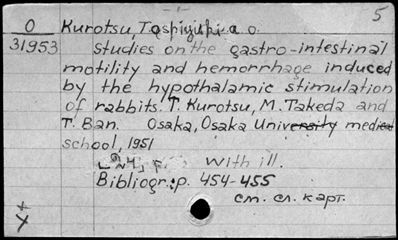 5
O Kurotsu, Toshiyuki a.o.
31953
Studies on the gastro-intestinal
motility and hemorrhage induced
by the hypothalamic stimulation
of rabbits. T. Kurotsu, M. Takeda and
T. Ban. Osaka, Osaka University medical
school, 1951
24, with ill.
Bibliogr.: p. 454-455
см. сл. карт.